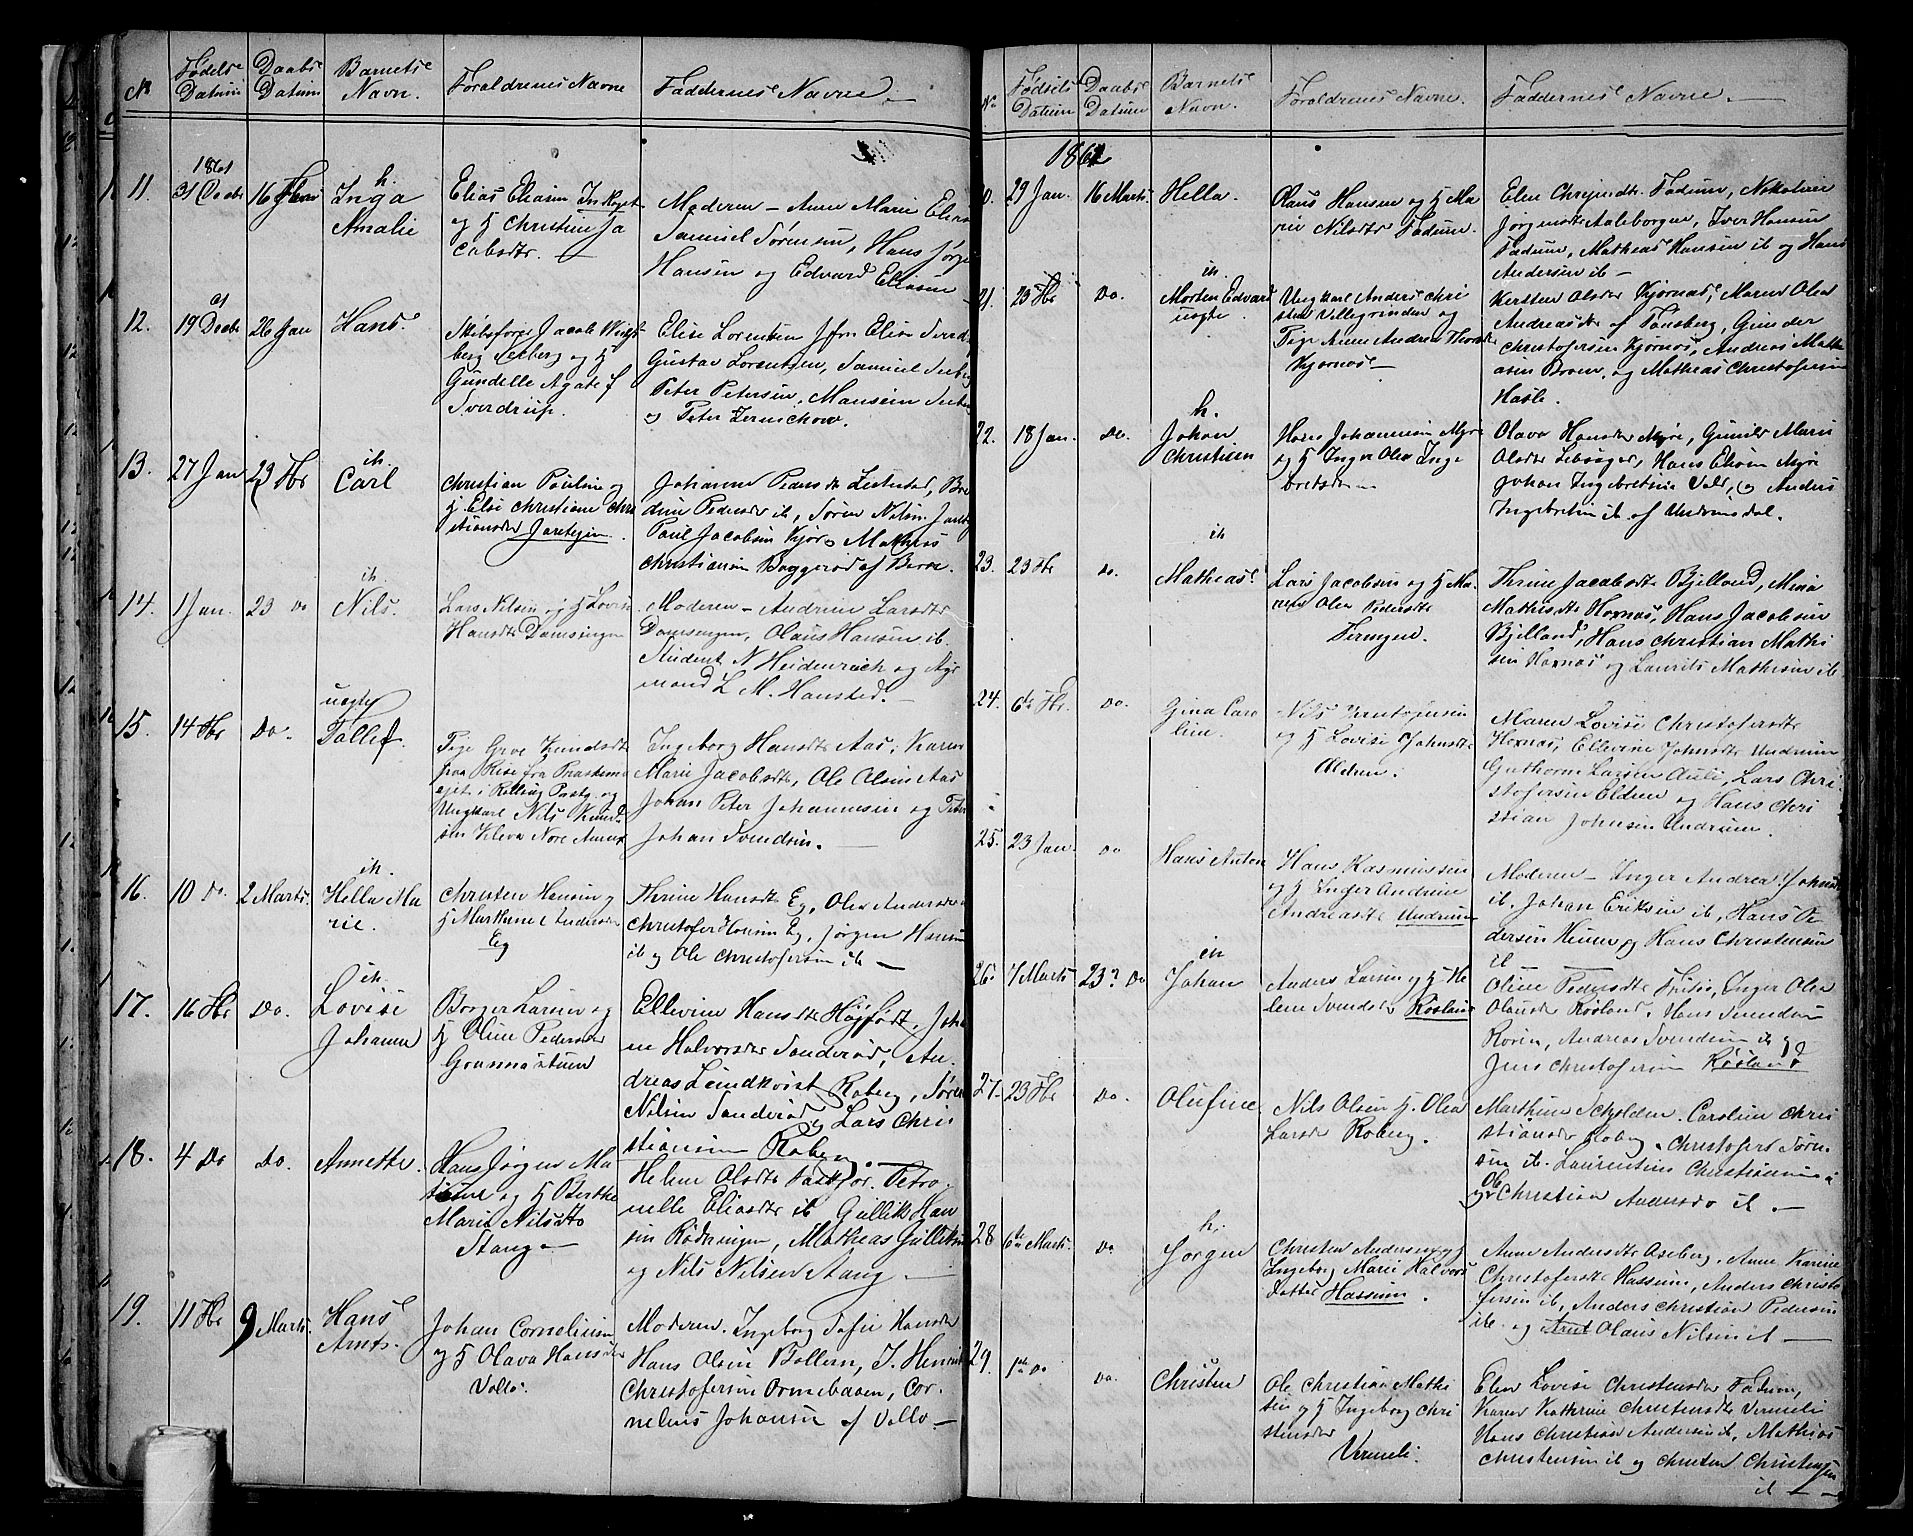 No Fødsels Datum Daabs Datum Barnets Navn. Forældrenes Navne Faddernes Navne
1861
11. 31 Decbr 16 Febr h. Inga Amalie
Elias Eliasen
og H Christine Ja
cobsdtr.
Moderen – Anne Marie Elias
Samuel Sørensen, Hans Jørg
Hansen og Edvard Eliasen
12. 19 Decbr 26 Jan Hans
Skibsfører Jacob
berg Seeberg og H
Gundelle Agate f
Sverdrup.
Elise Lorentzen Jfr. Elise Sverd
Gustav Lorentzen, Samuel Seeberg
Peter Petersen, Seeberg
og Peter
13. 27 Jan 23 Fbr ih. Carl
Christian Paulsen og
H. Else Christiane Chri
stiansdtr Jarteigen.
Johanne Pedersdtr
Pedersdtr ib, Søren Nilsen
Paul Jacobsen Kjær Mathias
Christiansen Baggerød af Berre.
14. 1 Jan. 23 Do ih. Nils.
Lars Nilsen og H Lovise
Hansdtr Damsengen
Moderen – Andrine Larsdtr
Damsengen, Olaus Hansen ib.
Student N Heidenreich og
L. M. Hansted.
15. 14 Fbr Do. uægte Tollef.
Pige
fra Præstegj
Ungkarl Nils Knud
sen
Ingeborg Hansdtr Aas, Karen
Marie Jacobsdtr, Ole Olsen Aas
Johan Peter Johannesen og Peter
Johan Svendsen. –
16. 10 Do. 2 Marts. ih. Hella Ma
rie.
Christen Hansen og
H Marthine Andersdtr
Eg
Thrine Hansdtr Eg, Olea Andersdtr
Christofer Hansen Eg, Jørgen Hansen
ib og Ole Christofersen ib –
17. 16 Fbr Do. ih. Lovise
Johanne
Borger Larsen og
H Oline Pedersdtr
Ellevine Hansdtr Høgfødt, Joha
ne Halvorsdtr Sanderød, An
dreas Lundkvist Roberg, Søren
Nilsen Sanderød og Lars Chri
stiansen Roberg. –
18. 4 Do Do. Annette.
Hans Jørgen Ma
og H Berthe
Marie Nilsdtr
Stang –
Helene Olsdtr Petro
nelle Eliasdtr ib Gullik Han
sen Rødningen, Mathias Gulliksen
og Nils Nilsen Stang –
19. 11 Fbr 9 Marts. Hans
Arnts.
Johan Cornelius
og H Olava Hansdtr
Vallø.
Moderen. Ingeborg Sofie Hansdtr
Hans Olsen Bollern, J. Henrik
Christofersen Ormebaaen, Cor
nelius Johansen af Vallø –
No Fødsels Datum Daabs Datum Barnets Navn. Forældrenes Navne. Faddernes Navne. –
1862
20. 29 Jan. 16 Marts. Hella.
Olaus Hansen og H Ma
rie Nilsdtr Fadum.
Elen Fadum,
Jørgensdtr Aaleborgen, Iver Hansen
Fadum, Mathias Hansen ib og Hans
Andersen ib –
21. 25 Fbr Do. ih. Morten Edvard
uægte.
Ungkarl Anders Chri
stensen Vellegrinden og
Pige Anne Andrea Thorsdtr
Kjørnøs –
Kersten Olsdtr Kjørnøs, Maren Olea
Andreasdtr af Tønsberg, Gunder
Christofersen Kjørnøs, Andreas Math
isen Broen. og Mathias Christofersen
Hasle.
22. 18 Jan. Do. h. Johan
Christian
Hans Johannesen Myre
og H Inger Olea Inge
bretsdtr –
Olava Hansdtr Myre, Gunild Marie
Olsdtr Hans Myre
Johan Ingebretsen og Anders
Ingebretsen ib. af Undrumsdal.
23. 23 Fbr Do. ih Mathias
Lars Jacobsen og H Ma
ren Olea Pedersdtr
Feringen.
Thrine Jacobsdtr Bjelland, Mina
Mathisdtr Hoxnøs, Hans Jacobsen
Bjelland, Hans Christian Mathi
sen Hoxnøs og Laurits Mathisen ib
24. 6te Fbr. Do. Gina Caro
line.
Nils Kristofersen
og H Lovise Johnsdtr
Oldren.
Maren Lovise Christofersdtr
Hoxnøs, Ellevine Johnsdtr Undrum
Guthorm Larsen Auli, Lars Chri
stofersen Oldren og Hans Chri
stian Johnsen Undrum.
25. 23 Jan. Do Hans Anton
Hans Rasmussen
og H Inger Andrine
Andreasdtr Undrum
Moderen – Inger Andrea Johns
ib. Johan Eriksen ib, Hans Pe
dersen Heime og Hans Christensen
ib
26. 7 Marts 23? Do ih Johan
Anders Larsen og H He
lene Svendsdtr Røsland
Oline Pedersdtr Inger Olea
Olausdtr Røsland. Hans Svendsen
Roren, Andreas Svendsen ib og
Jens Christofersen Røsland
27. 23 Fbr Do. Olufine.
Nils Olsen H. Olea
Larsdtr Roberg.
Marthine Skjolden. Caroline Chri
stiansdtr Roberg. Christofer Søren
sen ib. Laurentius Christiansen i
og Ole Christian Andersdo ib. –
28 6te Marts. Do h. Jørgen
Christen Andersen og H
Ingeborg Marie Halvors
datter Hassum.
Anne Andersdtr Aseberg. Anne Karine
Christofersdtr Hassum, Anders Christo
fersen ib, Anders Christian Pedersen
ib. og Olaus Nilsen ib –
29. 1ste Do Do. Christen
Ole Christian Mathi
sen og H Ingeborg Chri
stensdtr
Vermeli.
Elen Lovise Christensdtr Fadum,
Karen Kathrine Christensdtr Vermeli
Hans Christian Andersen ib, Mathias
Christensen ib og Christen Christensen
ib – –